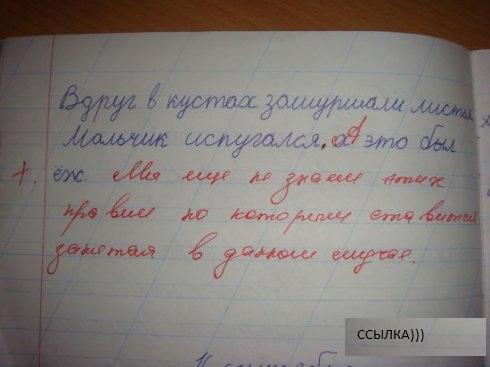 Вдруг в кустах зашуршали листья
Мальчик испугался. А это был
ёж. Мы еще не знаем этих
правил по которым ставится
запятая в данном случае.
ССЫЛКА)))